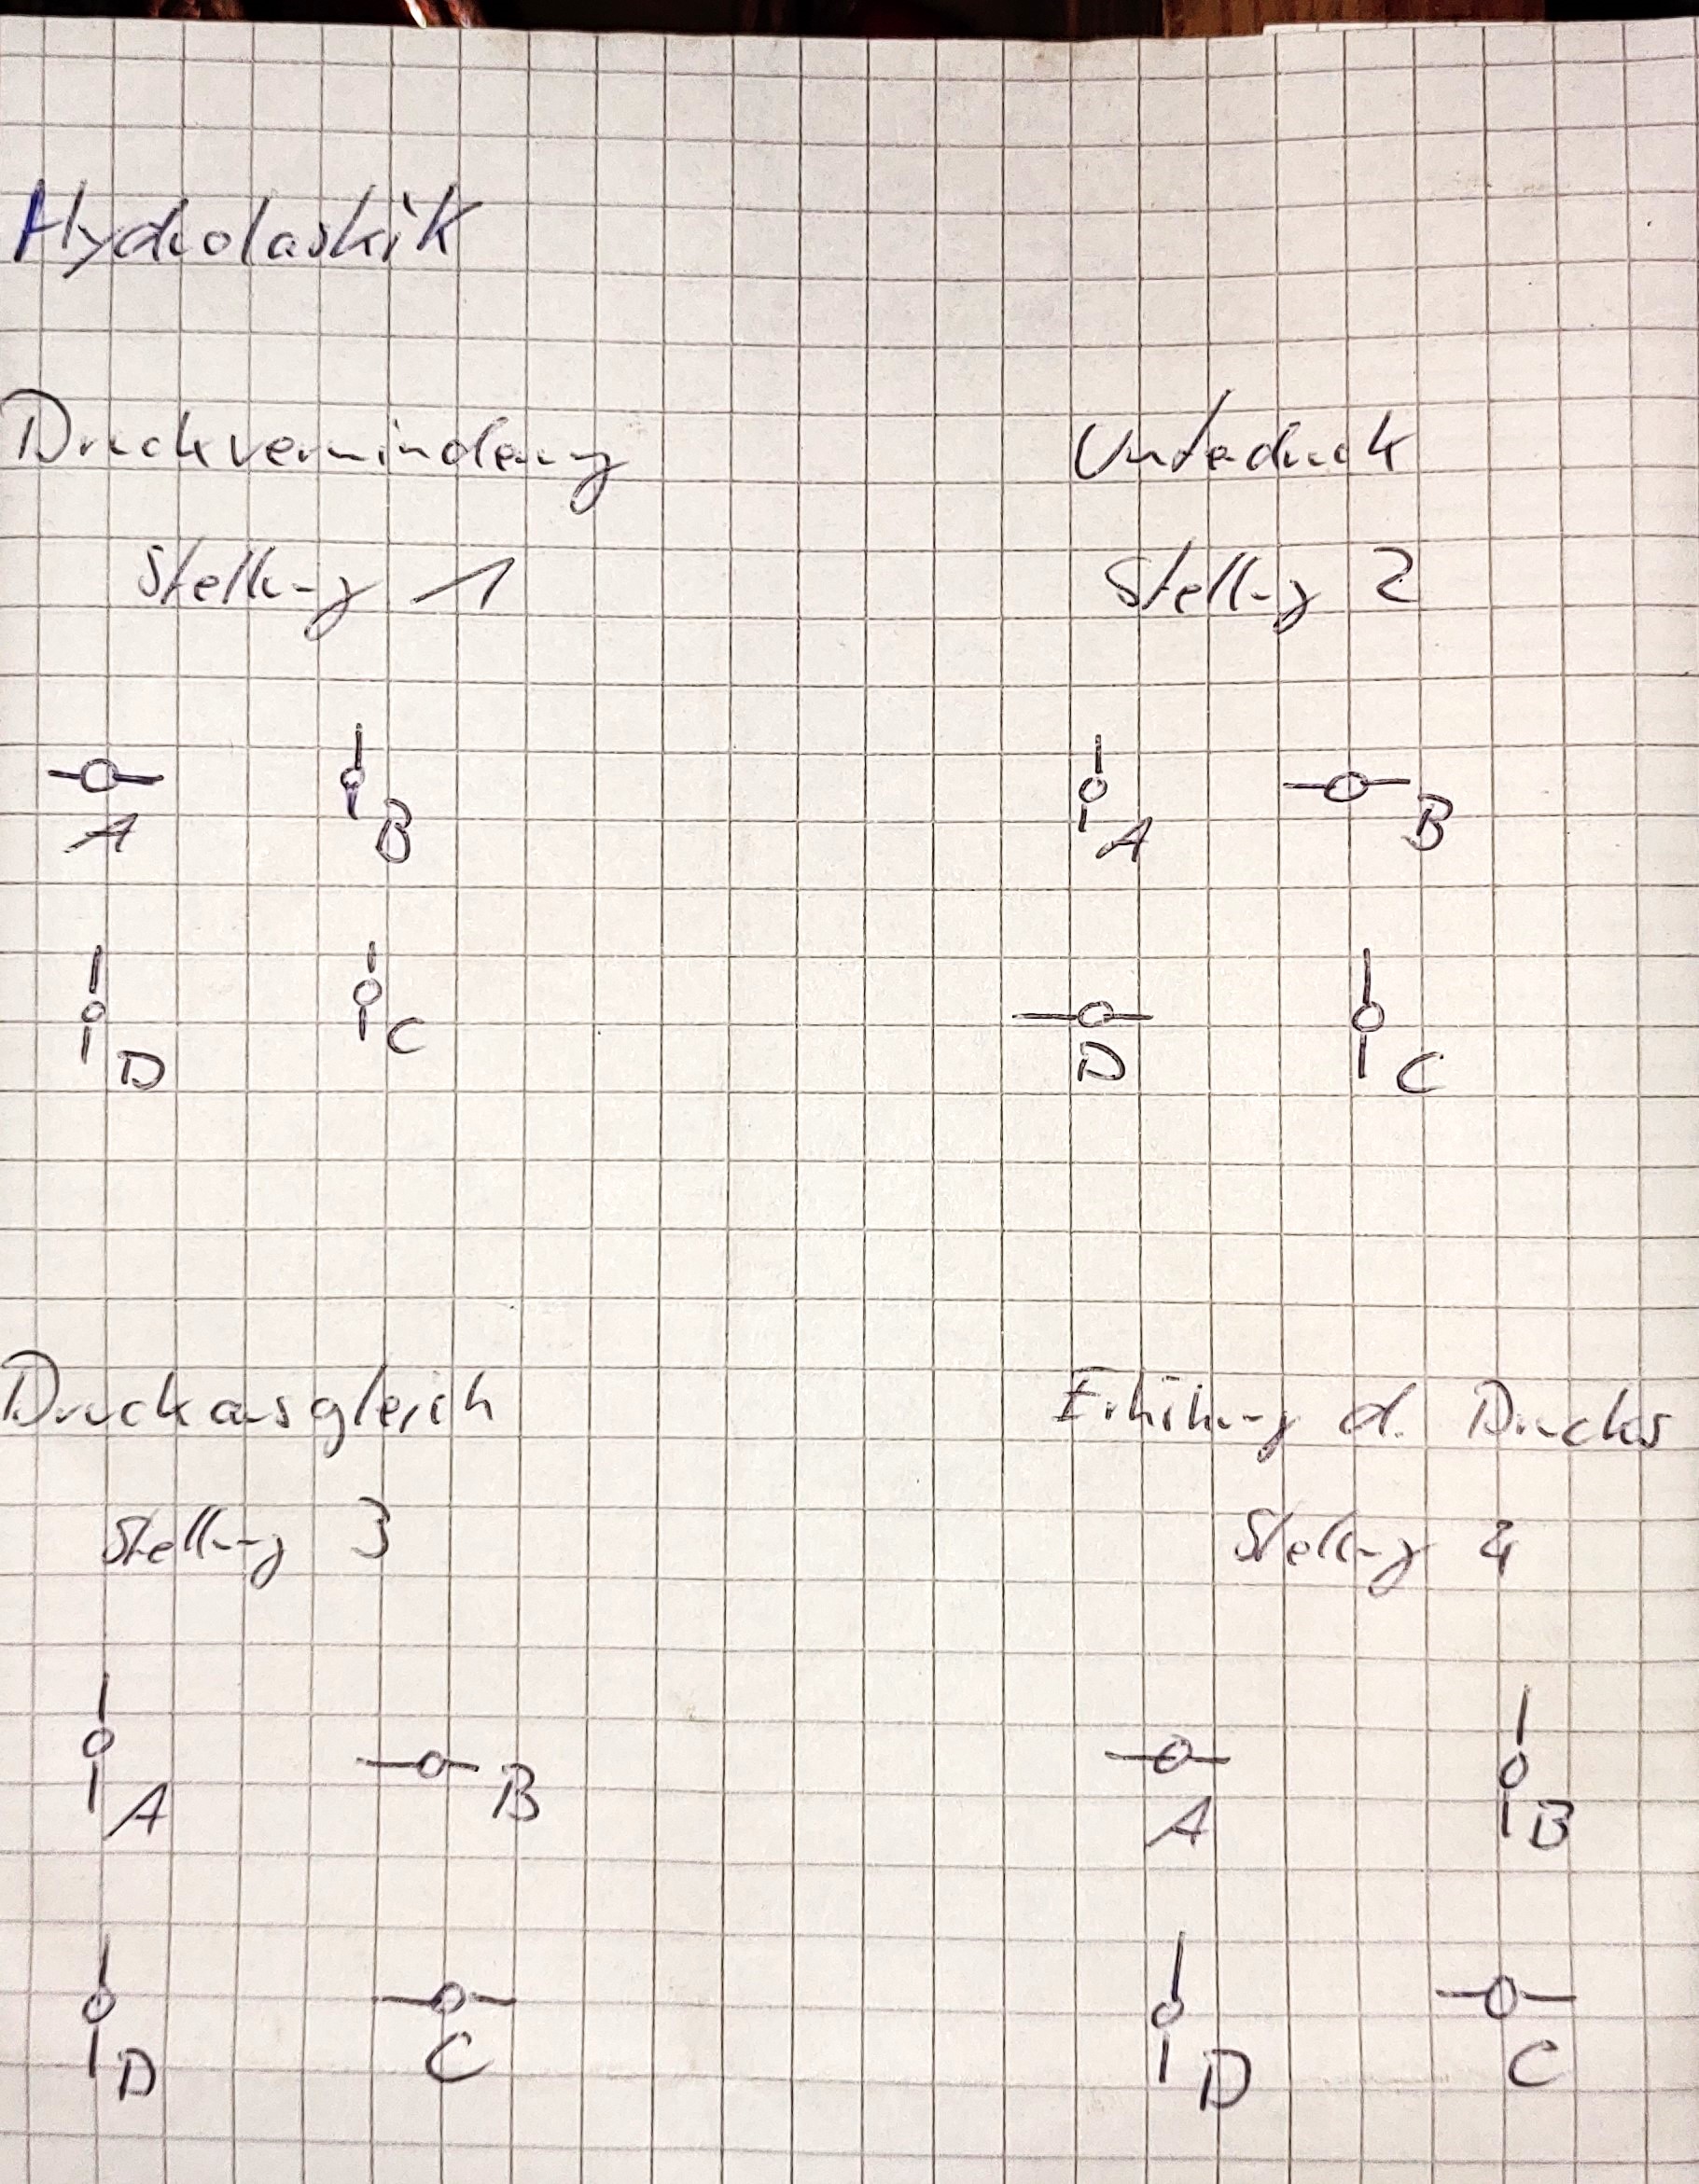 Hydrolastik
Druckverminderung
Stellung 1
A B
D C
Unterdruck
Stellung 2
A B
D C
Druckausgleich
Stellung 3
A B
D C
Erhöhung d. Drucks
Stellung 4
A B
D C